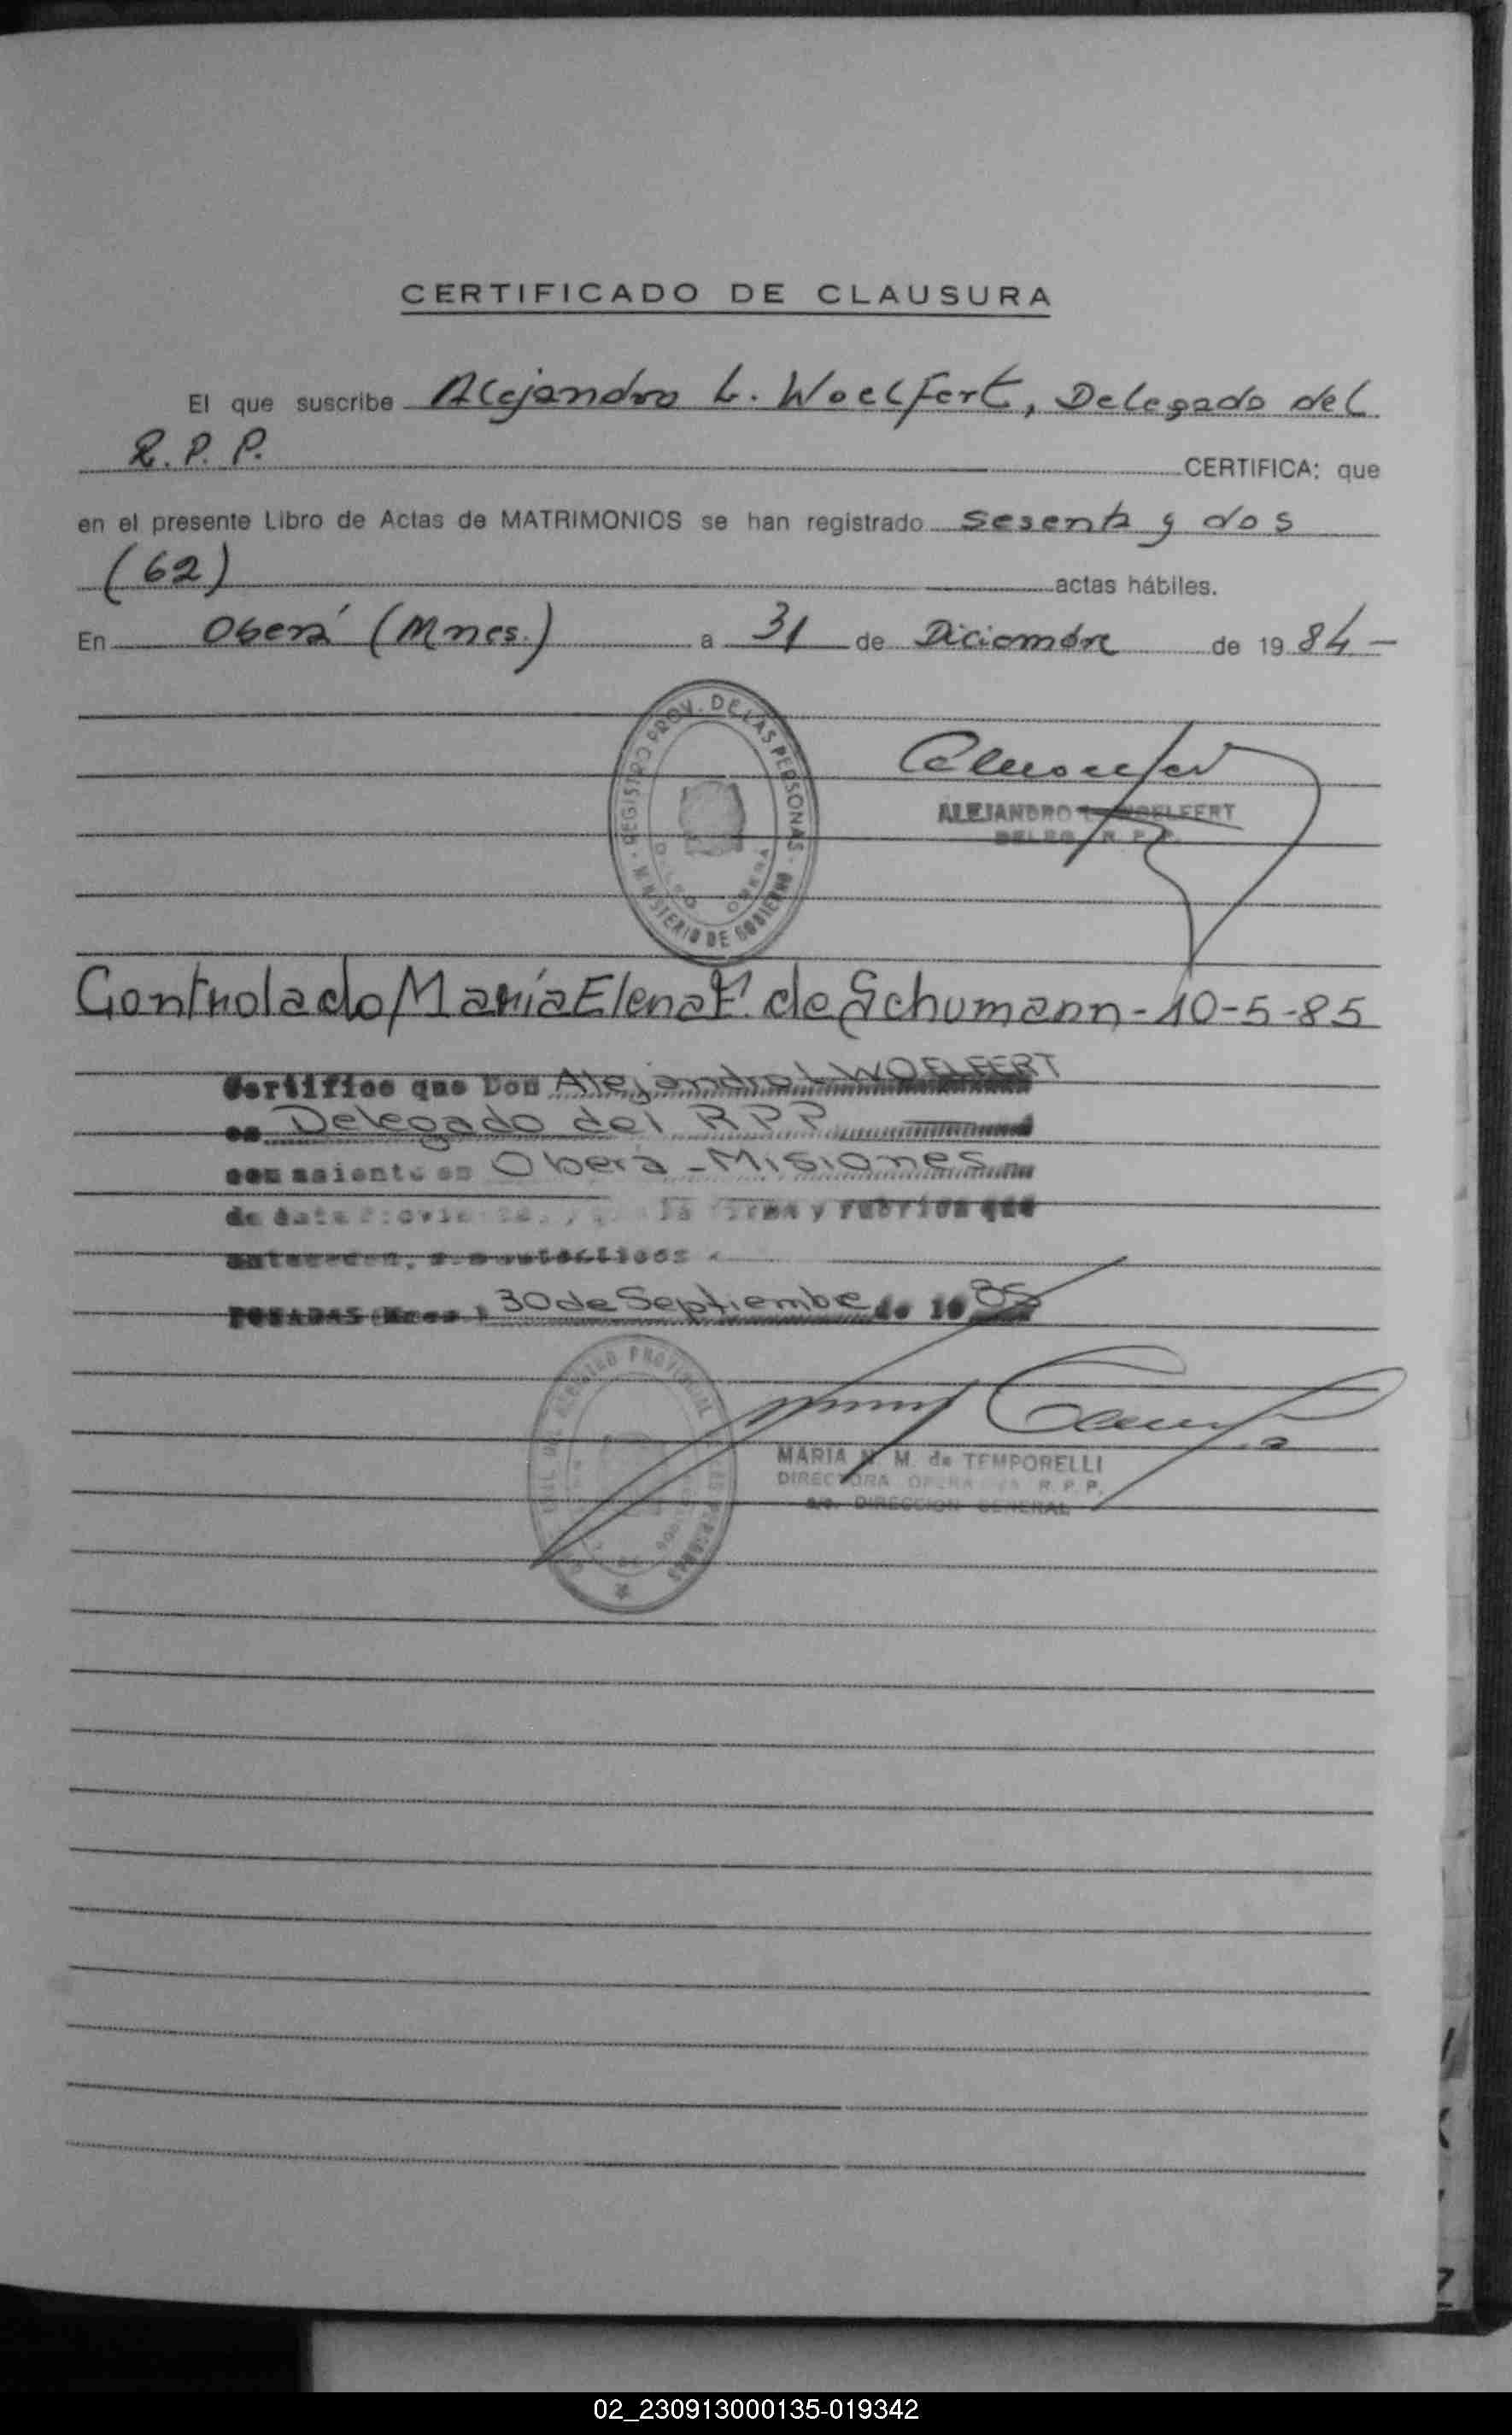 CERTIFICADO DE CLAUSURA
El que suscribe Alejandro L. Woelfert, Delegado del
R. P. P. CERTIFICA: que
en el presente Libro de Actas de MATRIMONIOS se han registrado sesenta y dos
(62) actas hábiles.
En Oberá (Mnes.) a 31 de Diciembre de 1984 -
REGISTRO PROV. DE LAS PERSONAS
MINISTERIO DE GOBIERNO
OBERÁ
ALEJANDRO L. WOELFERT
DELEG. R. P. P.
Controlado María Elena F. de Schumann - 10-5-85
Certifico que Don Alejandro L WOELFERT
es Delegado del RPP
con asiento en Oberá - Misiones
de esta Provincia, y que la firma y rubrica que
anteceden, son auténticos.
POSADAS (Mnes.) 30 de Septiembe de 1985
REGISTRO PROVINCIAL DE LAS PERSONAS
MARIA N. M. de TEMPORELLI
DIRECTORA OPERATIVA R. P. P.
a/c. DIRECCION GENERAL
02_230913000135-019342